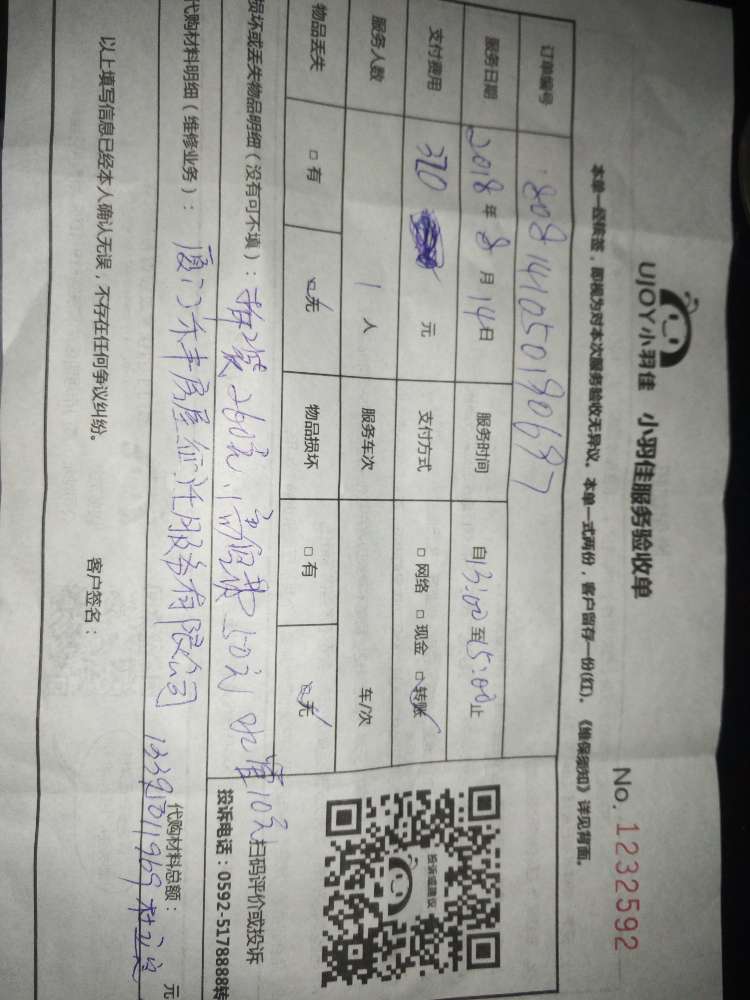 UJOY小羽佳 小羽佳服务验收单
No. 1232592
本单一经核签，即视为对本次服务验收无异议。本单一式两份，客户留存一份(红)。《维保须知》详见背面。
订单编号 808141050180697
服务日期 2018年8月14日 服务时间 自13:00至15:00止
支付费用 320 元 支付方式 □网络 □现金 ☑转账
服务人数 1人 服务车次 车/次
物品丢失 □有 ☑无 物品损坏 □有 ☑无
扫码评价或投诉
投诉电话：0592-5178888转
损坏或丢失物品明细（没有可不填）： 260元, 50元 水管10元
代购材料明细（维修业务）： 厦门禾丰房屋征迁服务有限公司
代购材料总额： 元
以上填写信息已经本人确认无误，不存在任何争议纠纷。 客户签名：